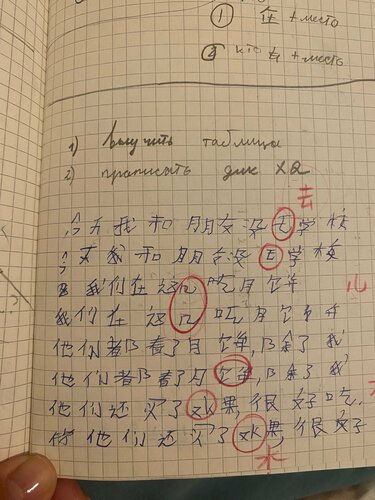 ① 在 + место
② кто 在 + место
1) Выучить таблица
2) прописать дик XQ
去
今天我和朋友没去学校
今天我和朋友没去学校
我们在这儿吃月饼
儿
我们在这儿吃月饼
他们都看了月饼,除了我
他们都看了月饼,除了我
他们还买了水果,很好吃.
他们还买了水果,很好
水